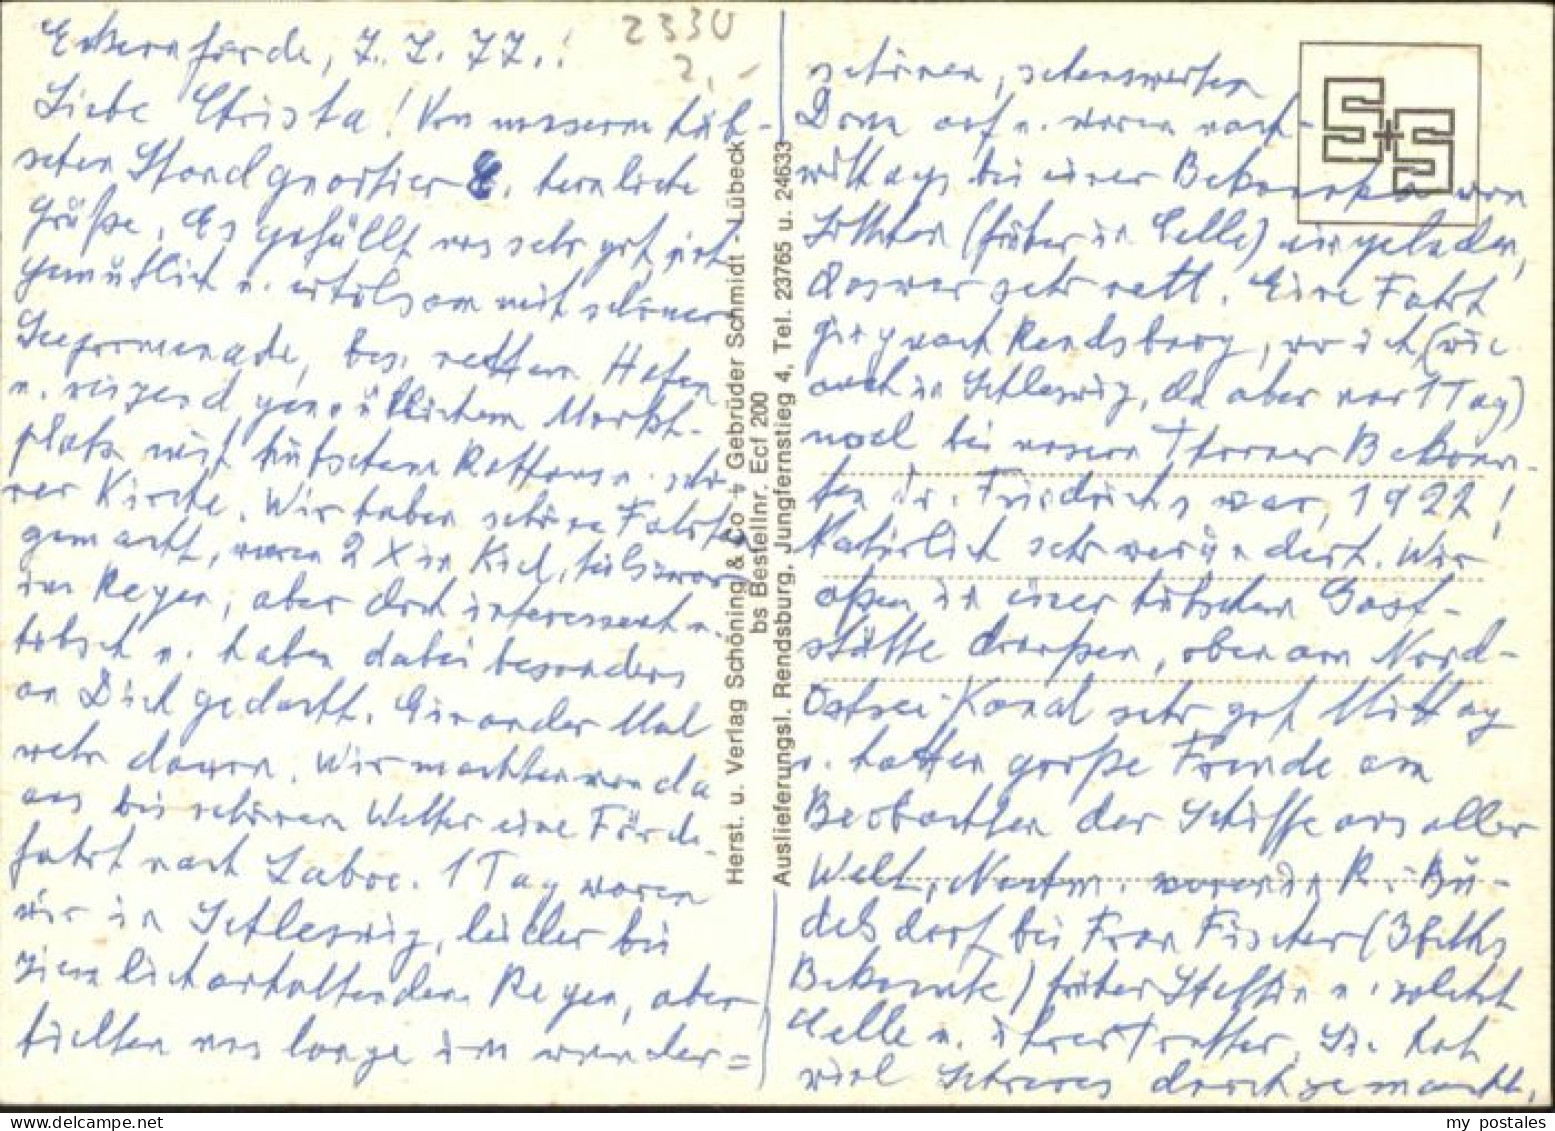 2330
2,-
Eckernförde, 7.7.77.!
Liebe Christa! Von unserem hüb-
schen Standquartier E. herzliche
Grüße. Es gefällt uns sehr gut, ist
gemütlich u. erholsam mit schöner
Seepromenade, bes. nettem Hafen
u. reizend gemütlichem Markt-
platz mit hübschem Rathaus u.
Kirche. Wir haben schöne Fahrten
gemacht, waren 2 x in Kiel, teilsweise
im Regen, aber doch interessant u.
hübsch u. haben dabei besonders
an Dich gedacht. Ein ander Mal
mehr davon. Wir machten von da
aus bei schönem Wetter eine Förde-
fahrt nach Laboe. 1 Tag waren
wir in Schleswig, leider bei
ziemlich anhaltendem Regen, aber
hielten uns lange im wunder=
schönen, sehenswerten
Dom auf u. waren nach-
mittags bei einer Bekannten von
(früher in Celle) eingeladen,
das war sehr nett. Eine Fahrt
ging nach Rendsburg, wo ich (wie
auch in Schleswig, da aber nur 1 Tag)
mal bei unsern Thorner Bekann-
ten Friedrichs war, 1922!
Natürlich sehr verändert. Wir
aßen in einer hübschen Gast-
stätte draußen, oben am Nord-
Ostsee-Kanal sehr gut Mittag
u. hatten große Freude am
Beobachten der Schiffe aus aller
Welt. Nachm. waren in R.-Bü-
delsdorf bei Frau Fischer (
Bekannte) früher Stettin u. zuletzt
Celle u. ihrer Tochter. Sie hat
viel Schweres durchgemacht.
S+S
Herst. u. Verlag Schöning & Co + Gebrüder Schmidt - Lübeck
bs Bestellnr. Ecf 200
Auslieferungsl. Rendsburg, Jungfernstieg 4, Tel. 23765 u. 24633
my postales